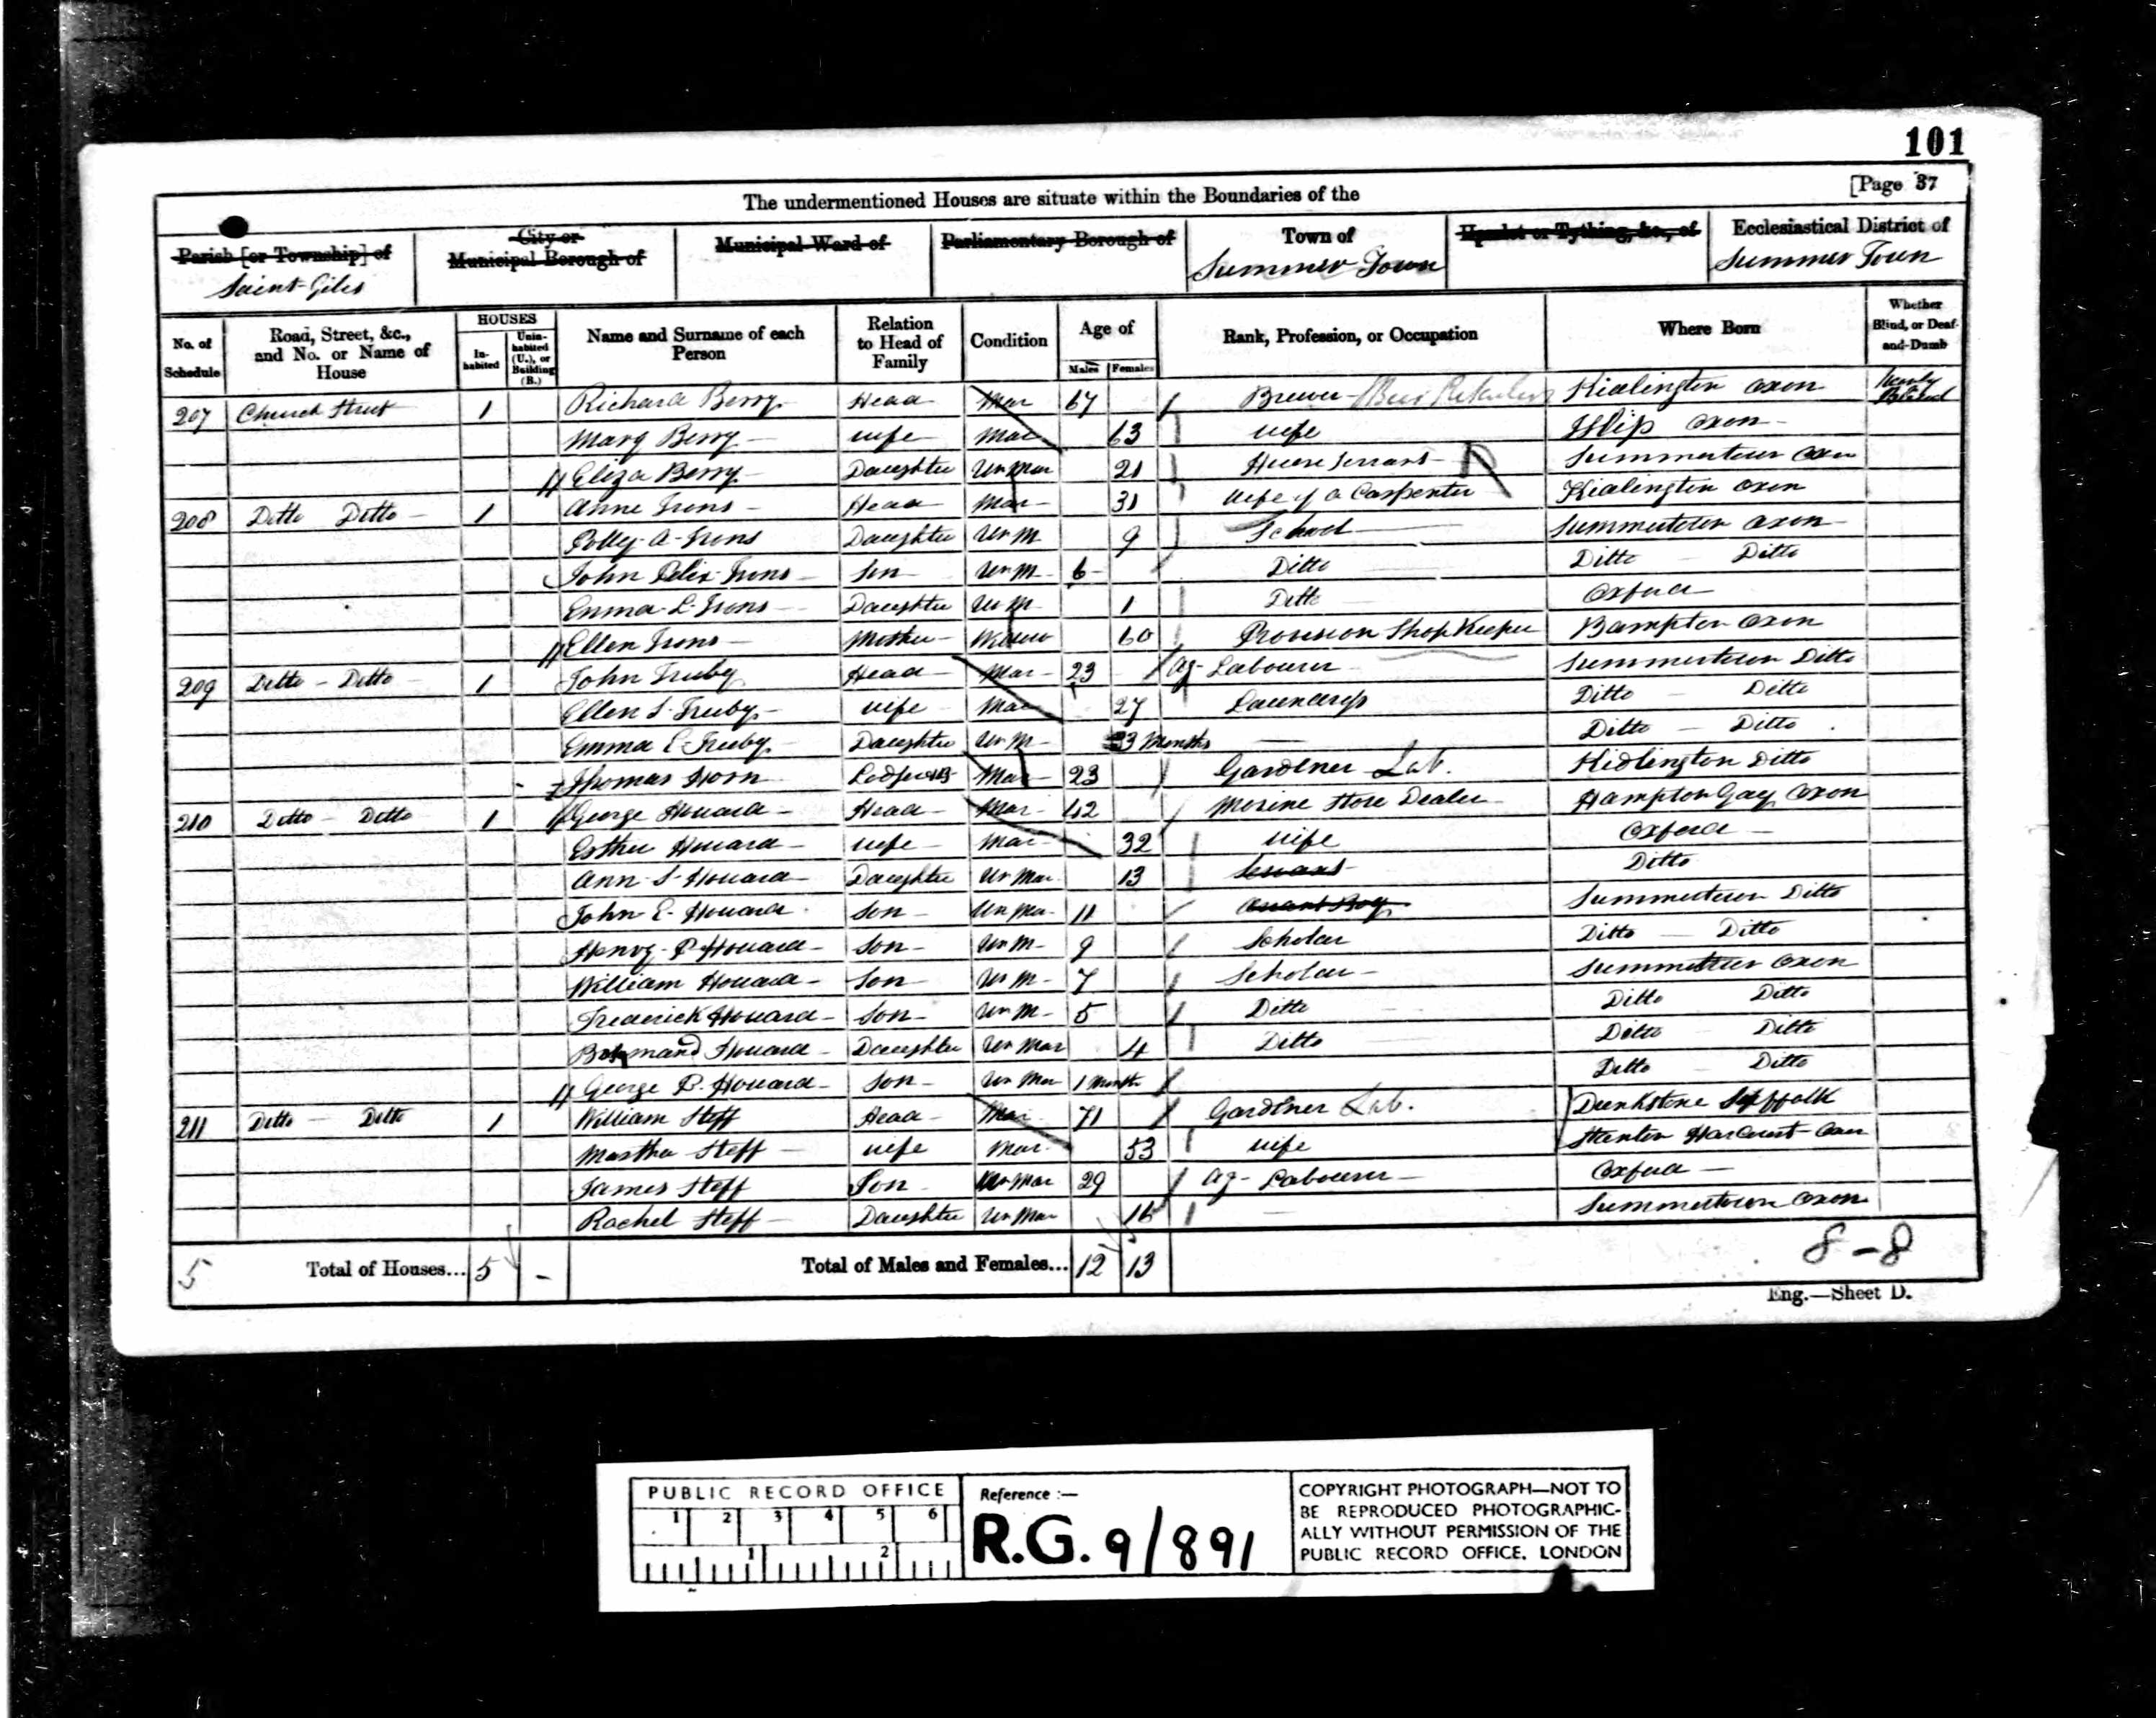 101
[Page 37
The undermentioned Houses are situate within the Boundaries of the
Parish [or Township] of City or Municipal Borough of Municipal Ward of Parliamentary Borough of Town of Hamlet or Tything, &c., of Ecclesiastical District of
Saint Giles Summer Town Summer Town
No. of Schedule Road, Street, &c., and No. or Name of House HOUSES Inhabited Uninhabited (U.), or Building (B.) Name and Surname of each Person Relation to Head of Family Condition Age of Males Females Rank, Profession, or Occupation Where Born Whether Blind, or Deaf-and-Dumb
207 Church Street 1 Richard Berry Head Mar 67 Brewer Kidlington Oxon Nearly Blind
Mary Berry Wife Mar 63 Wife Islip Oxon
Eliza Berry Daughter Un Mar 21 House Servant Summertown Oxon
208 Ditto Ditto 1 Anne Irons Head Mar 31 Wife of a Carpenter Kidlington Oxon
Polly A Irons Daughter Un M 9 School Summertown Oxon
John Felix Irons Son Un M 6 Ditto Ditto Ditto
Emma L Irons Daughter Un M 1 Ditto Oxford
Ellen Irons Mother Widow 60 Provision Shop Keeper Bampton Oxon
209 Ditto Ditto 1 John Truby Head Mar 23 Ag Labourer Summertown Ditto
Ellen S Truby Wife Mar 27 Laundress Ditto Ditto
Emma E Truby Daughter Un M 3 Months Ditto Ditto
Thomas Horn Lodger Mar 23 Gardener Lab. Kidlington Ditto
210 Ditto Ditto 1 George Howard Head Mar 42 Marine Store Dealer Hampton Gay Oxon
Esther Howard Wife Mar 32 Wife Oxford
Ann S Howard Daughter Un Mar 13 Servant Ditto
John E Howard Son Un Mar 11 Boy Summertown Ditto
Henry P Howard Son Un M 9 Scholar Ditto Ditto
William Howard Son Un M 7 Scholar Summertown Oxon
Frederick Howard Son Un M 5 Ditto Ditto Ditto
Howard Daughter Un Mar 4 Ditto Ditto Ditto
George P. Howard Son Un Mar 1 Month Ditto Ditto
211 Ditto Ditto 1 William Steff Head Mar 71 Gardener Lab. Suffolk
Martha Steff Wife Mar 53 Wife Stanton Harcourt Oxon
James Steff Son Un Mar 29 Ag Labourer Oxford
Rachel Steff Daughter Un Mar 16 Summertown Oxon
5 Total of Houses... 5 - Total of Males and Females... 12 13 8-8
Eng.—Sheet D.
PUBLIC RECORD OFFICE
1 2 3 4 5 6
1 2
Reference :—
R.G. 9/891
COPYRIGHT PHOTOGRAPH—NOT TO
BE REPRODUCED PHOTOGRAPHIC-
ALLY WITHOUT PERMISSION OF THE
PUBLIC RECORD OFFICE, LONDON